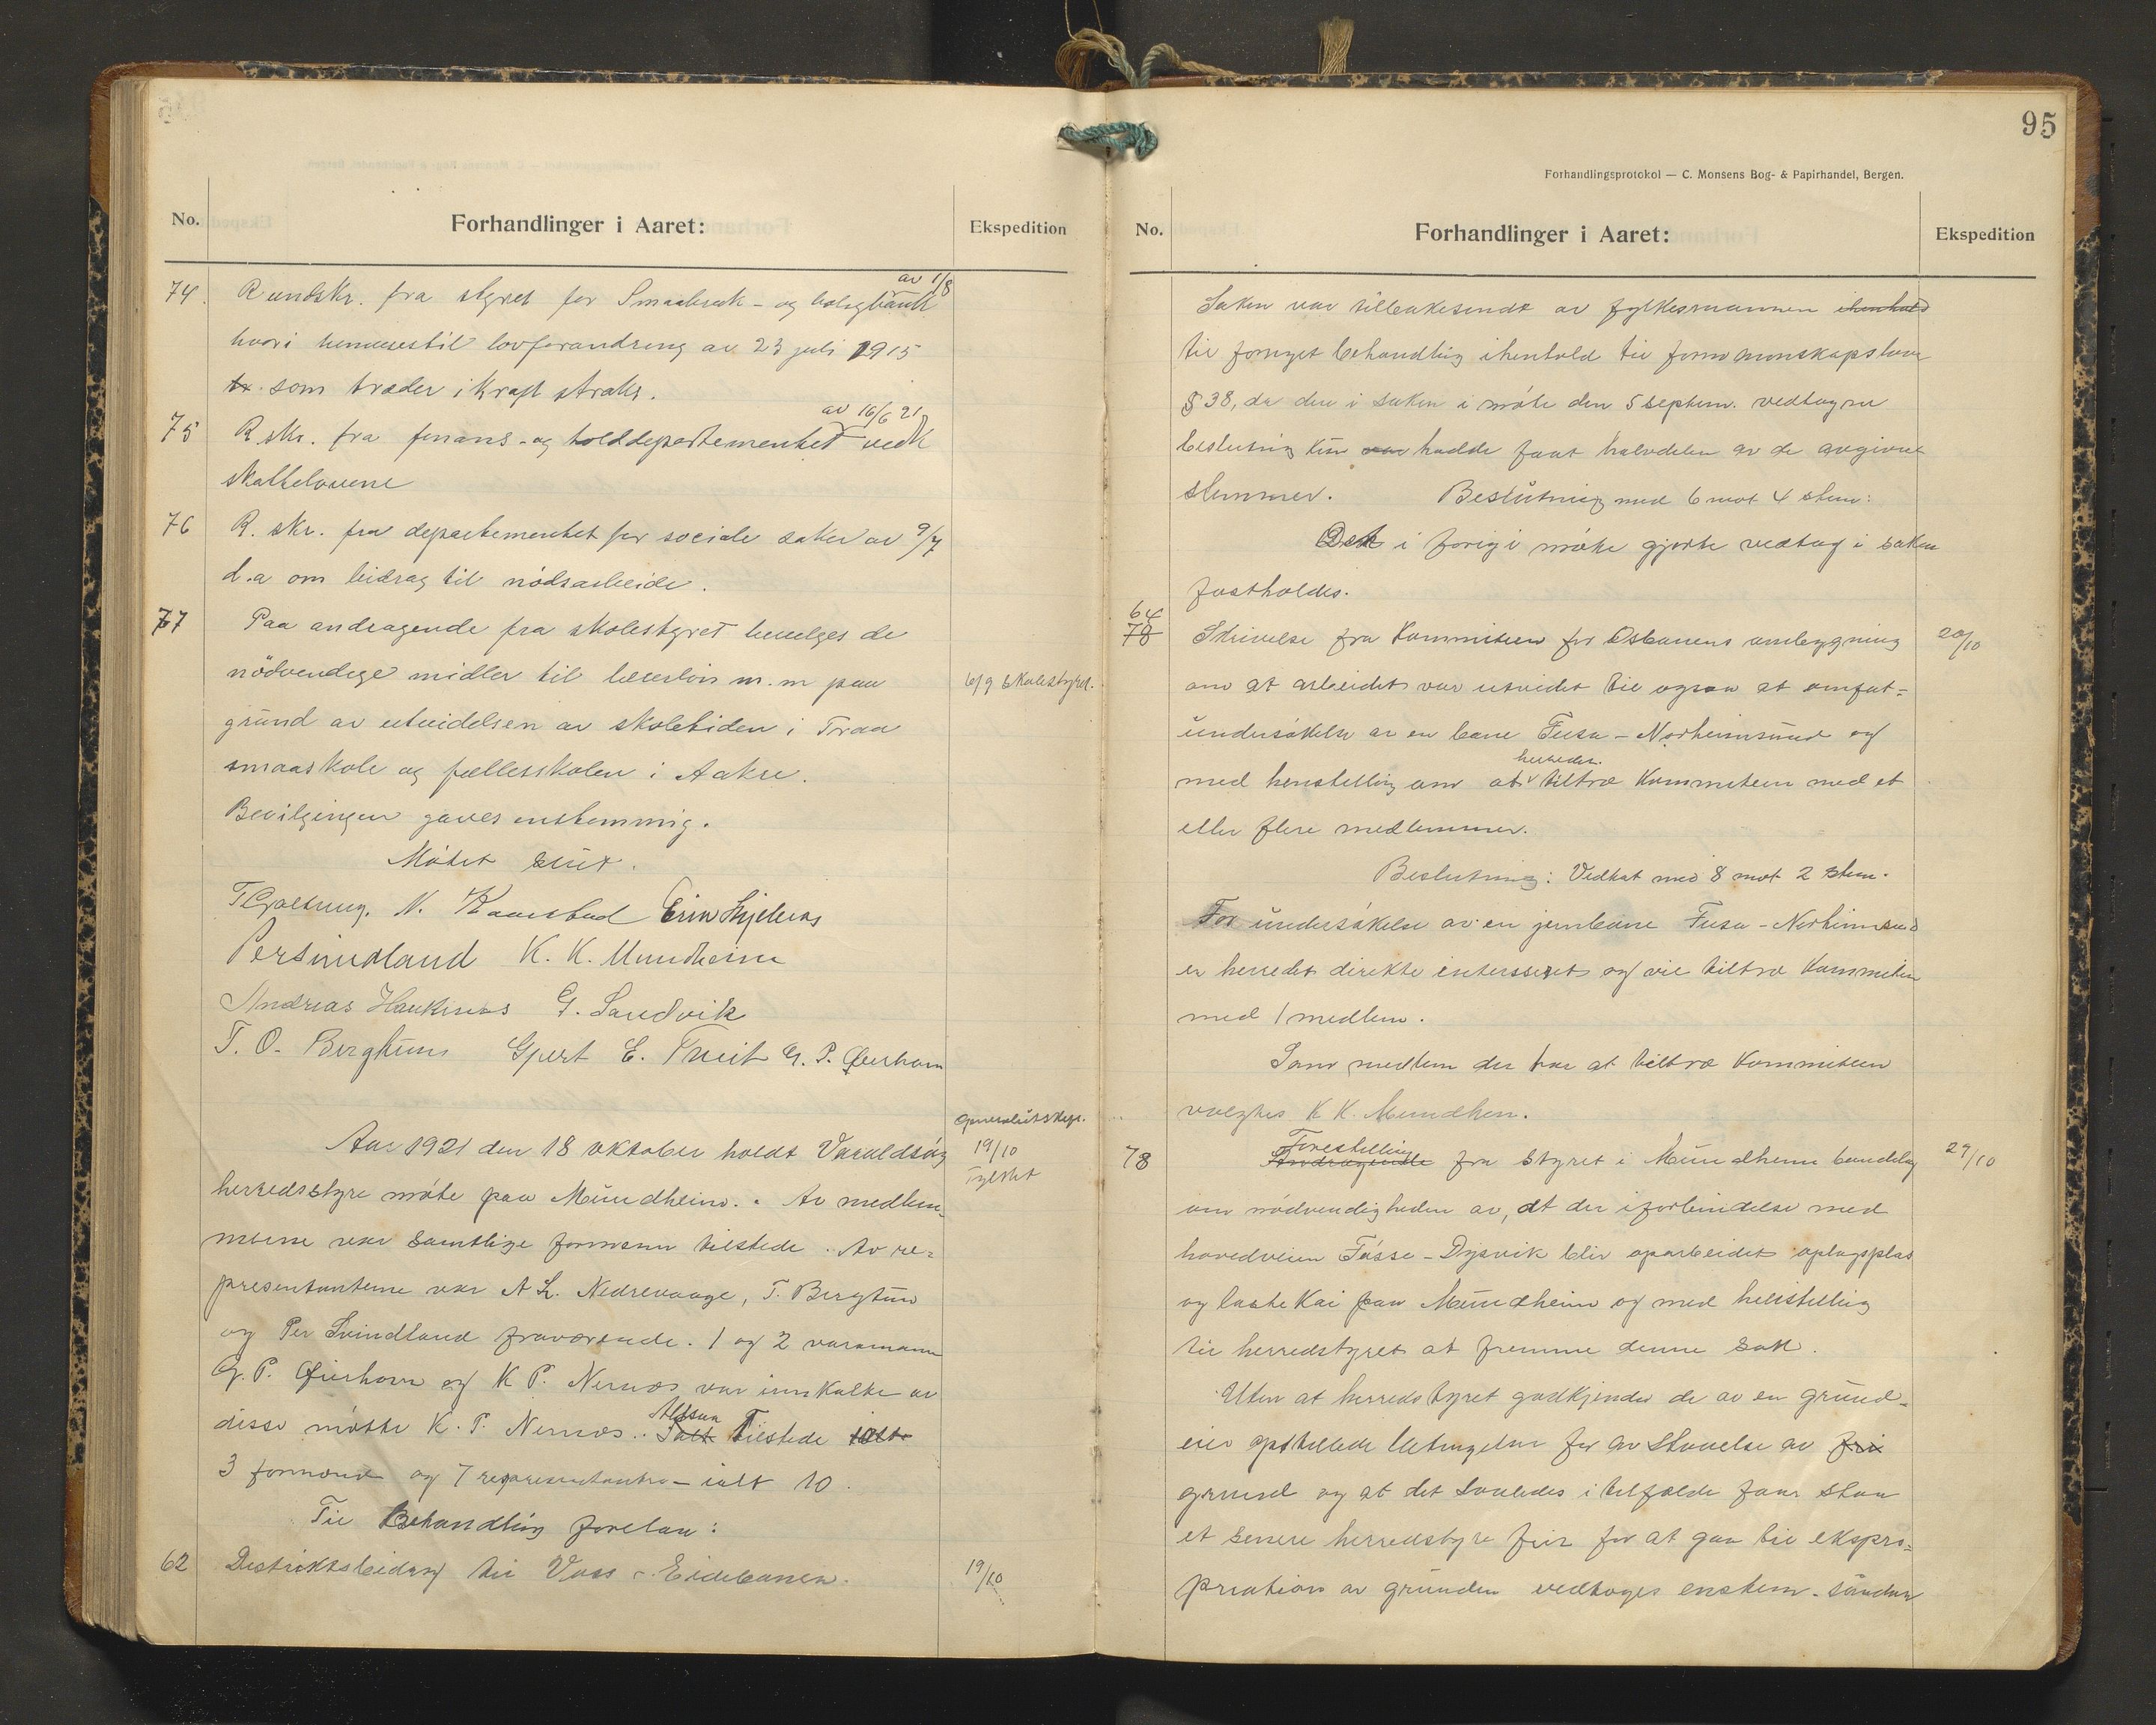 No.
Forhandlinger i Aaret:
Ekspedition
av 1/8
74. Rundskr. fra styret for Smaabruk- og boligbank
hvori henvises til lovforandring av 23 juli 1915
som træder i kraft straks.
av 16/6 21
75 R.skr. fra finans- og tolddepartementet vedk
skattelovene
76 R. skr. fra departementet for sociale saker av 9/7
d.a om bidrag til nödsarbeide.
77 Paa andragende fra skolestyret bevilges de
nödvendige midler til lærerlön m.m paa
6/9 Skolestyret.
grund av utvidelsen av skoletiden i Traa
smaaskole og fællesskolen i Aakre.
Bevilgingen gaves enstemmig.
Mötet slut.
T Gjætrung. N. Kaarstad
K. K. Mundheim
Andreas Haukenæs G. Sandvik
T. O. Bergtun Gjert E. Tveit G. P. Øierhavn
Aar 1921 den 18 oktober holdt Varaldsöy
19/10
Fylket
herredsstyre möte paa Mundheim. Av medlem-
mene var samtlige formenn tilstede. Av re-
presentantene var A L. Nedrevaage, T. Bergtun
og Per Svindland fraværende. 1 og 2 varamann
G. P. Øierhavn og K P. Nernæs var innkalte av
Altsaa
disse mötte K. P. Nernæs. Ialt tilstede ialt
3 formænd og 7 representanter - ialt 10.
Til Behandling forelaa:
62 Distriktsbidrag til Voss - Eidebanen.
19/10
95
Forhandlingsprotokol — C. Monsens Bog- & Papirhandel, Bergen.
No.
Forhandlinger i Aaret:
Ekspedition
Saken var tilbakesendt av fylkesmannen ihenhold
til fornyet behandling ihenhold til formannskapslove
§ 38, da den i saken i möte den 5 septem. vedtagne
beslutning kun var hadde faat halvdelen av de avgivne
stemmer. Beslutning med 6 mot 4 stem:
Det i forige möte gjorte vedtag i saken
fastholdes.
64
78 Skrivelse fra Kommiteen for Osbanens ombygning
20/10
om at arbeidet var utvidet til ogsaa at omfat-
undersökelse av en bane Fusa - Norheimsund og
herredet
med henstilling om at tiltræ Kommiteen med et
eller flere medlemmer.
Beslutning: Vedtat med 8 mot 2 stem.
For undersökelse av en jernbane Fusa - Norheimsund
er herredet direkte interesseret og vil tiltræ Kommiteen
med 1 medlem.
Som medlem der har at tiltræ Kommiteen
valgtes K K. Mundheim.
Forestilling
78 Andragende fra styret i Mundheim bondelag
29/10
om nödvendigheden av, at der i forbindelse med
hovedveien Fosse - Dysvik blir oparbeidet oplagsplas
og laste kai paa Mundheim og med henstilling
til herredstyret at fremme denne sak.
Uten at herredstyret godkjender de av en grund-
eier opstillede betingelser for avstaaelse av fri
grund og at det saaledes i tilfælde faar staa
et senere herredstyre frit for at gaa til ekspro-
priation av grunden vedtoges enstem. saadan